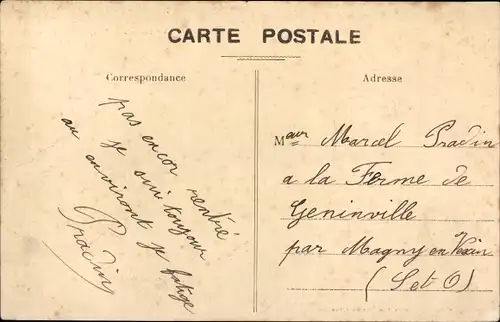 CARTE POSTALE
Correspondance
Adresse
pas encor rentré
je suis toujour
au environt je fatige
Pradin
Maur Marcel Pradin
a la Ferme de
Geninville
par Magny en Vexin
(S et O)